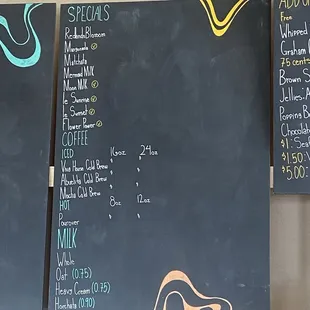 SPECIALS
Redondo Blossom
Marquesada
Matchata
Mermaid Milk
Moon Milk
le Summer
le Sunset
Flower Power
COFFEE
ICED 16oz 24oz
Viva Horne Cold Brew
Abuelita Cold Brew
Mocha Cold Brew
HOT 8oz 12oz
Pourover
MILK
Whole
Oat (0.75)
Heavy Cream (0.75)
Horchata (0.90)
Free
Whipped
Graham
75 cents
Brown S
Jellies: A
Popping B
Chocolate
$1: Sea
$1.50:
$5.00: